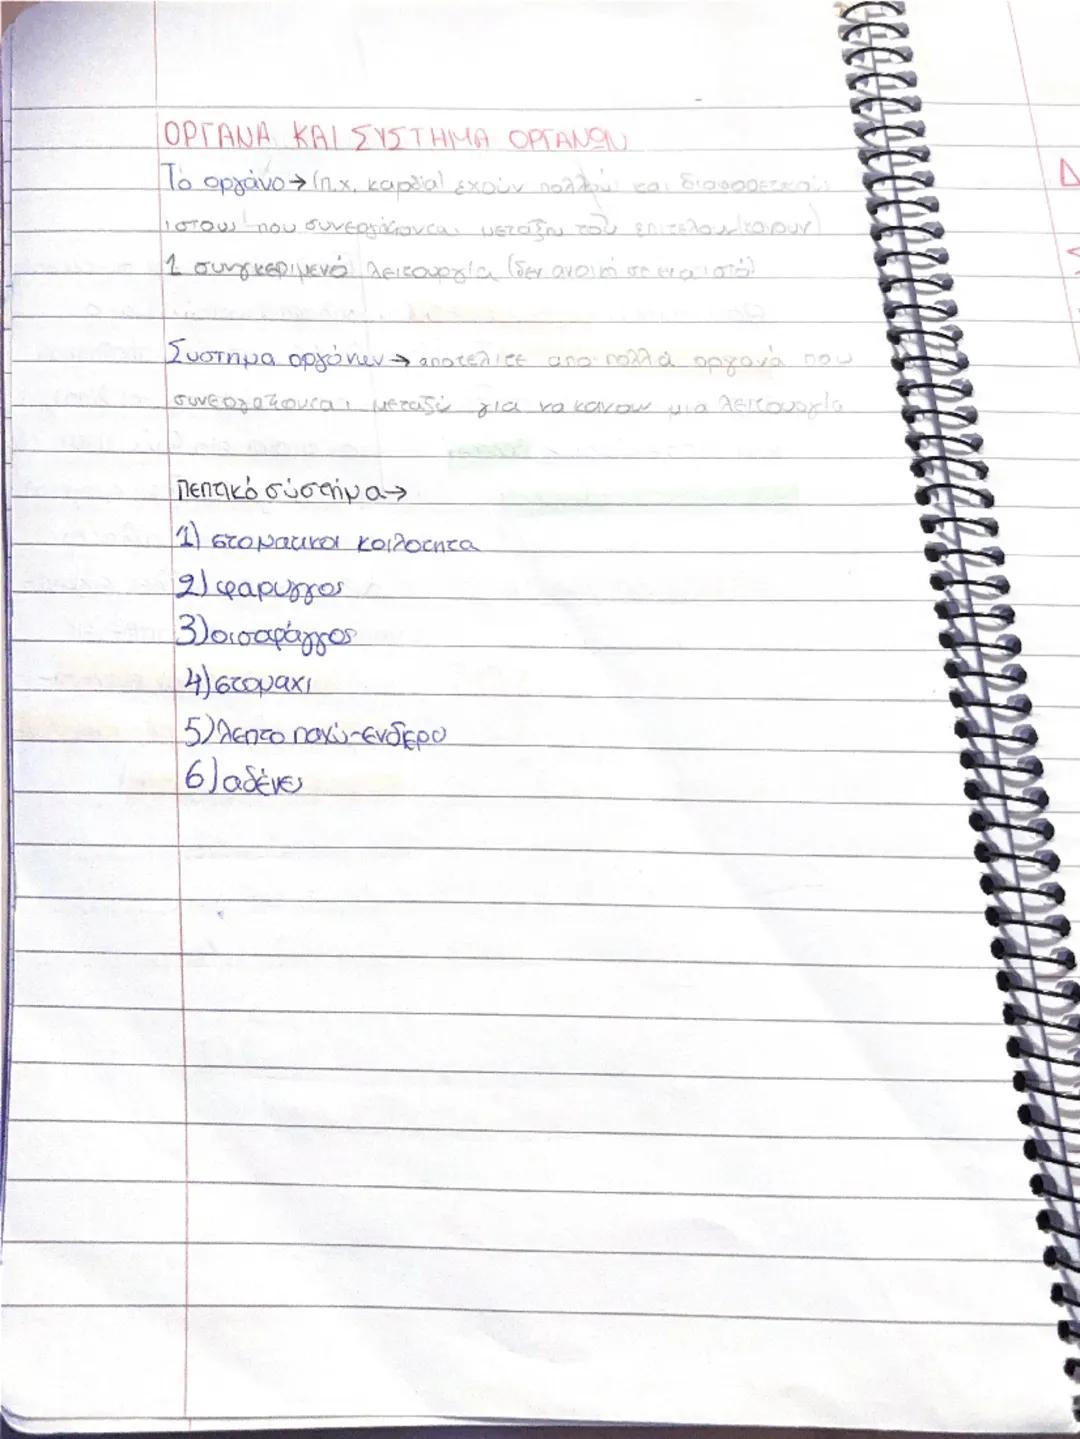 ΟΡΓΑΝΑ ΚΑΙ ΣΥΣΤΗΜΑ ΟΡΓΑΝΩΝ
Το οργάνο → (π.χ. καρδία) έχουν πολλούς και διαφορετικούς
ιστους που συνεργάζονται μεταξύ του επιτελουν (κανουν)
1 συνγκεριμενό λειτουργία (δεν ανοικη σε ενα ιστό)
Συστημα οργάνων → αποτελιτε απο πολλά οργανά που
συνεργαζονται μεταξύ για να κανουν μια λειτουργία
Πεπτικό σύστήμα →
1) στοματικοι κοιλοτητα
2) φαρυγγος
3) οισοφάγγος
4) στομαχι
5) λεπτο παχύ-ενδερο
6) αδένες
Δ